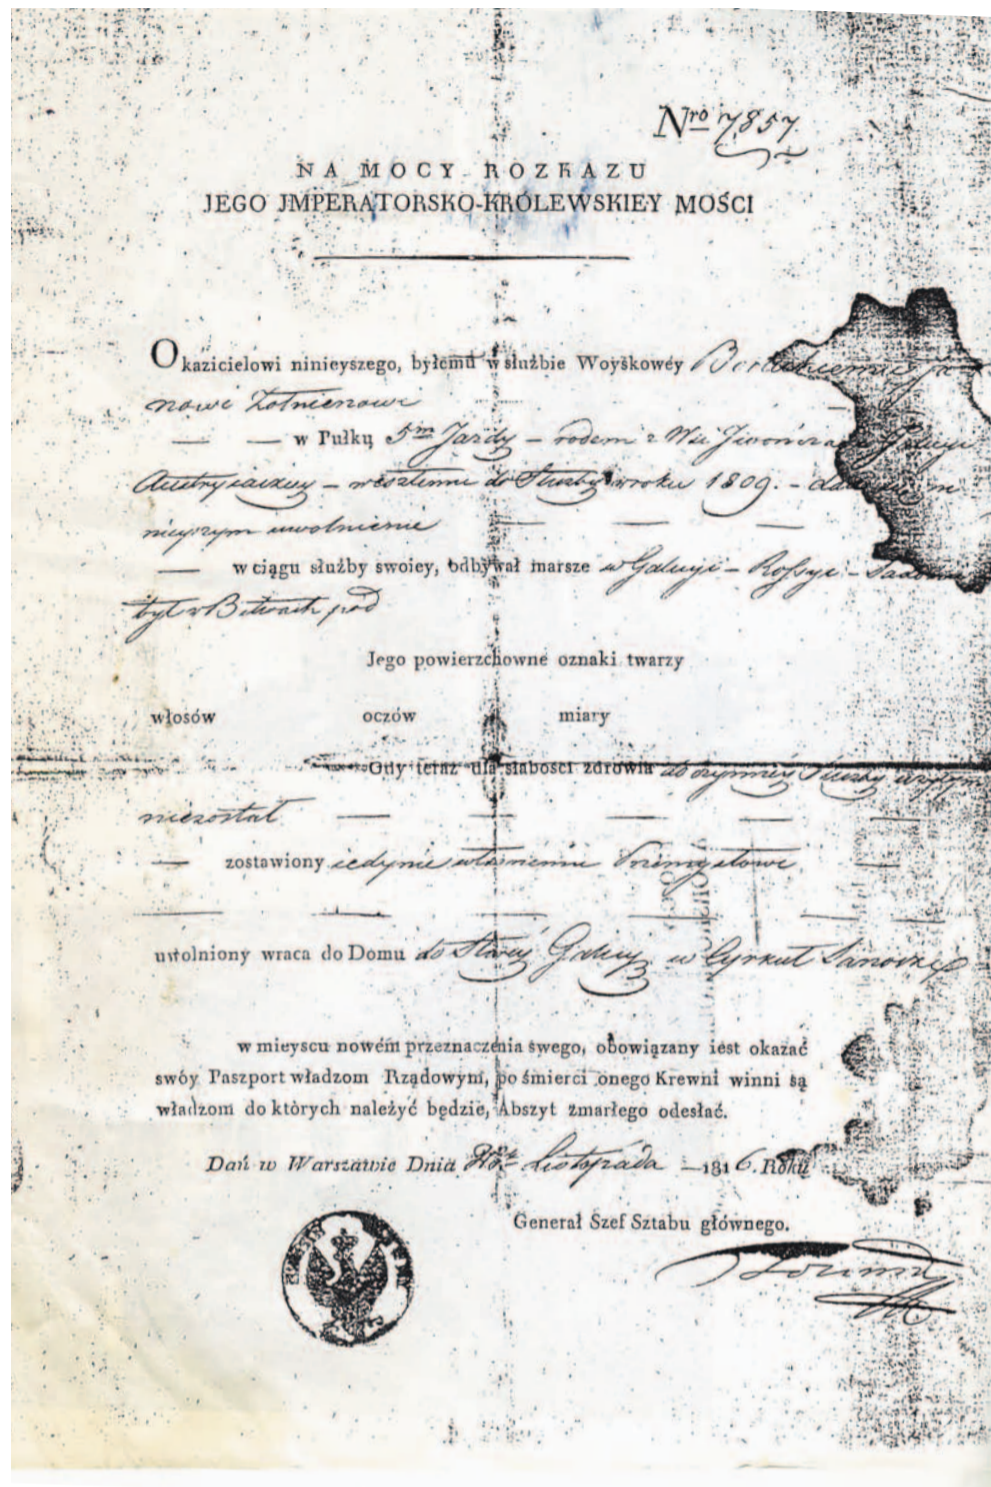 Nro 7857
NA MOCY ROZKAZU
JEGO JMPERATORSKO-KRÓLEWSKIEY MOŚCI
Okazicielowi ninieyszego, byłemu w służbie Woyskowéy
nowi Żołnierzowi
w Pułku 5m Jazdy – rodem z Wsi
Austryiackiey – weszłemu do Służby w roku 1809. –
nieyszym uwolnienie
w ciągu służby swoiey, odbywał marsze w Galicyi – Rossyi –
był w Bitwach pod
Jego powierzchowne oznaki twarzy
włosów oczów miary
Gdy teraz dla słabości zdrowia do czynnéy Służby
niezostał
zostawiony iedynie własnemu Przemysłowi
uwolniony wraca do Domu do Staréy Galicyi w Cyrkuł
w mieyscu nowém przeznaczenia swego, obowiązany iest okazać
swóy Paszport władzom Rządowym, po śmierci onego Krewni winni są
władzom do których należyć będzie, Abszyt zmarłego odesłać.
Dań w Warszawie Dnia Listopada 1816. Roku
Generał Szef Sztabu głównego.